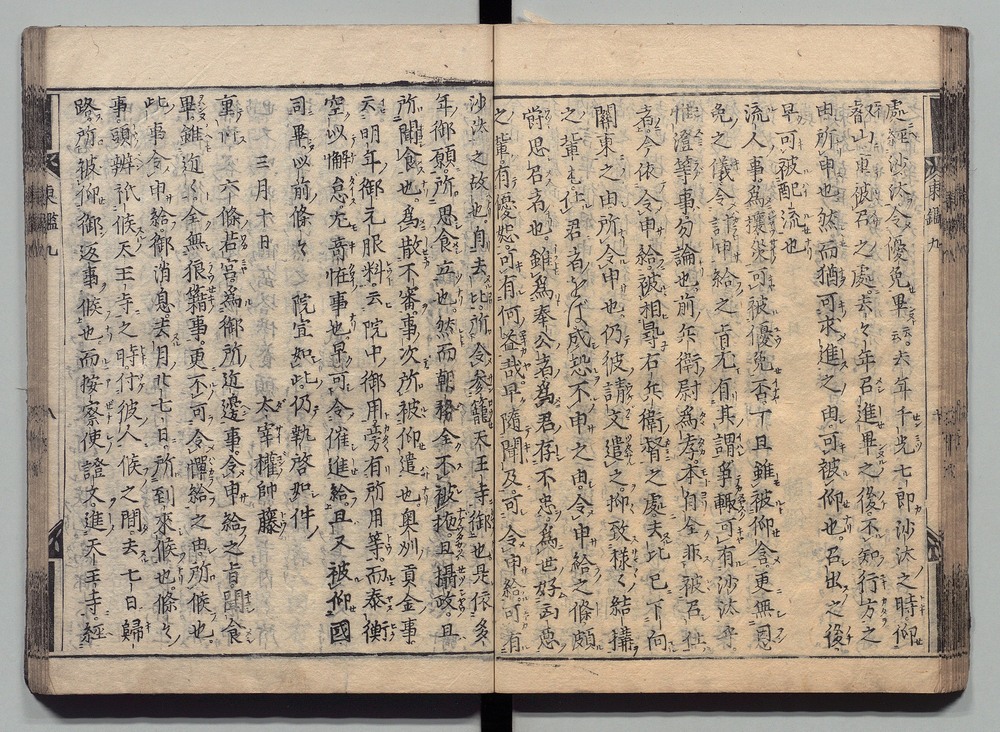 處經沙汰令優免畢云云去年千光七郎沙汰之時仰
叡山東被召之處去々年召進畢之後不知行方之
由所申也然而猶可求進之由可被仰也召出之後
早可被配流也
流人事爲攘災可被優免否事且雖被仰含更無恩
免之儀令計申給之旨尤有其謂爭輙可有沙汰乎
惟澄等事勿論也前兵衛尉爲孝本自全非被召仕
者今依令申給被相尋右兵衛督之處去比已下向
關東之由所令申也仍彼請文遣之抑致樣々結構
之輩也仕君者とて成恐不申之由令申給之條頗
爵思召者也雖爲奉公者爲君存不忠爲世好詞惡
之輩有優恕可有何益哉早隨聞及可令申給可有
沙汰之故也自去比所令參籠天王寺御也是依多
年御願所思食立也然而朝務全不被地且攝政且
所聞食也爲散不審事次所被仰遣也奥州貢金事
云明年御元服料云院中御用旁有所用等而泰衡
空以懈怠尤奇怪事也早可令催進給且又被仰國
司畢以前條々之院宣如此仍執啓如件
三月十日 太宰權帥藤
裏
六條若宮爲御所近邊事令申給之旨聞食
畢雖近々全無狼籍事更不可令憚給之由所候也
此事令申給御消息去月廿七日所到來候也條々
事頭辨祇候天王寺之時付彼人候之間去七日歸
路所被仰御返事候也而按察使證文進天王寺經
東鑑九
東鑑九
十
八